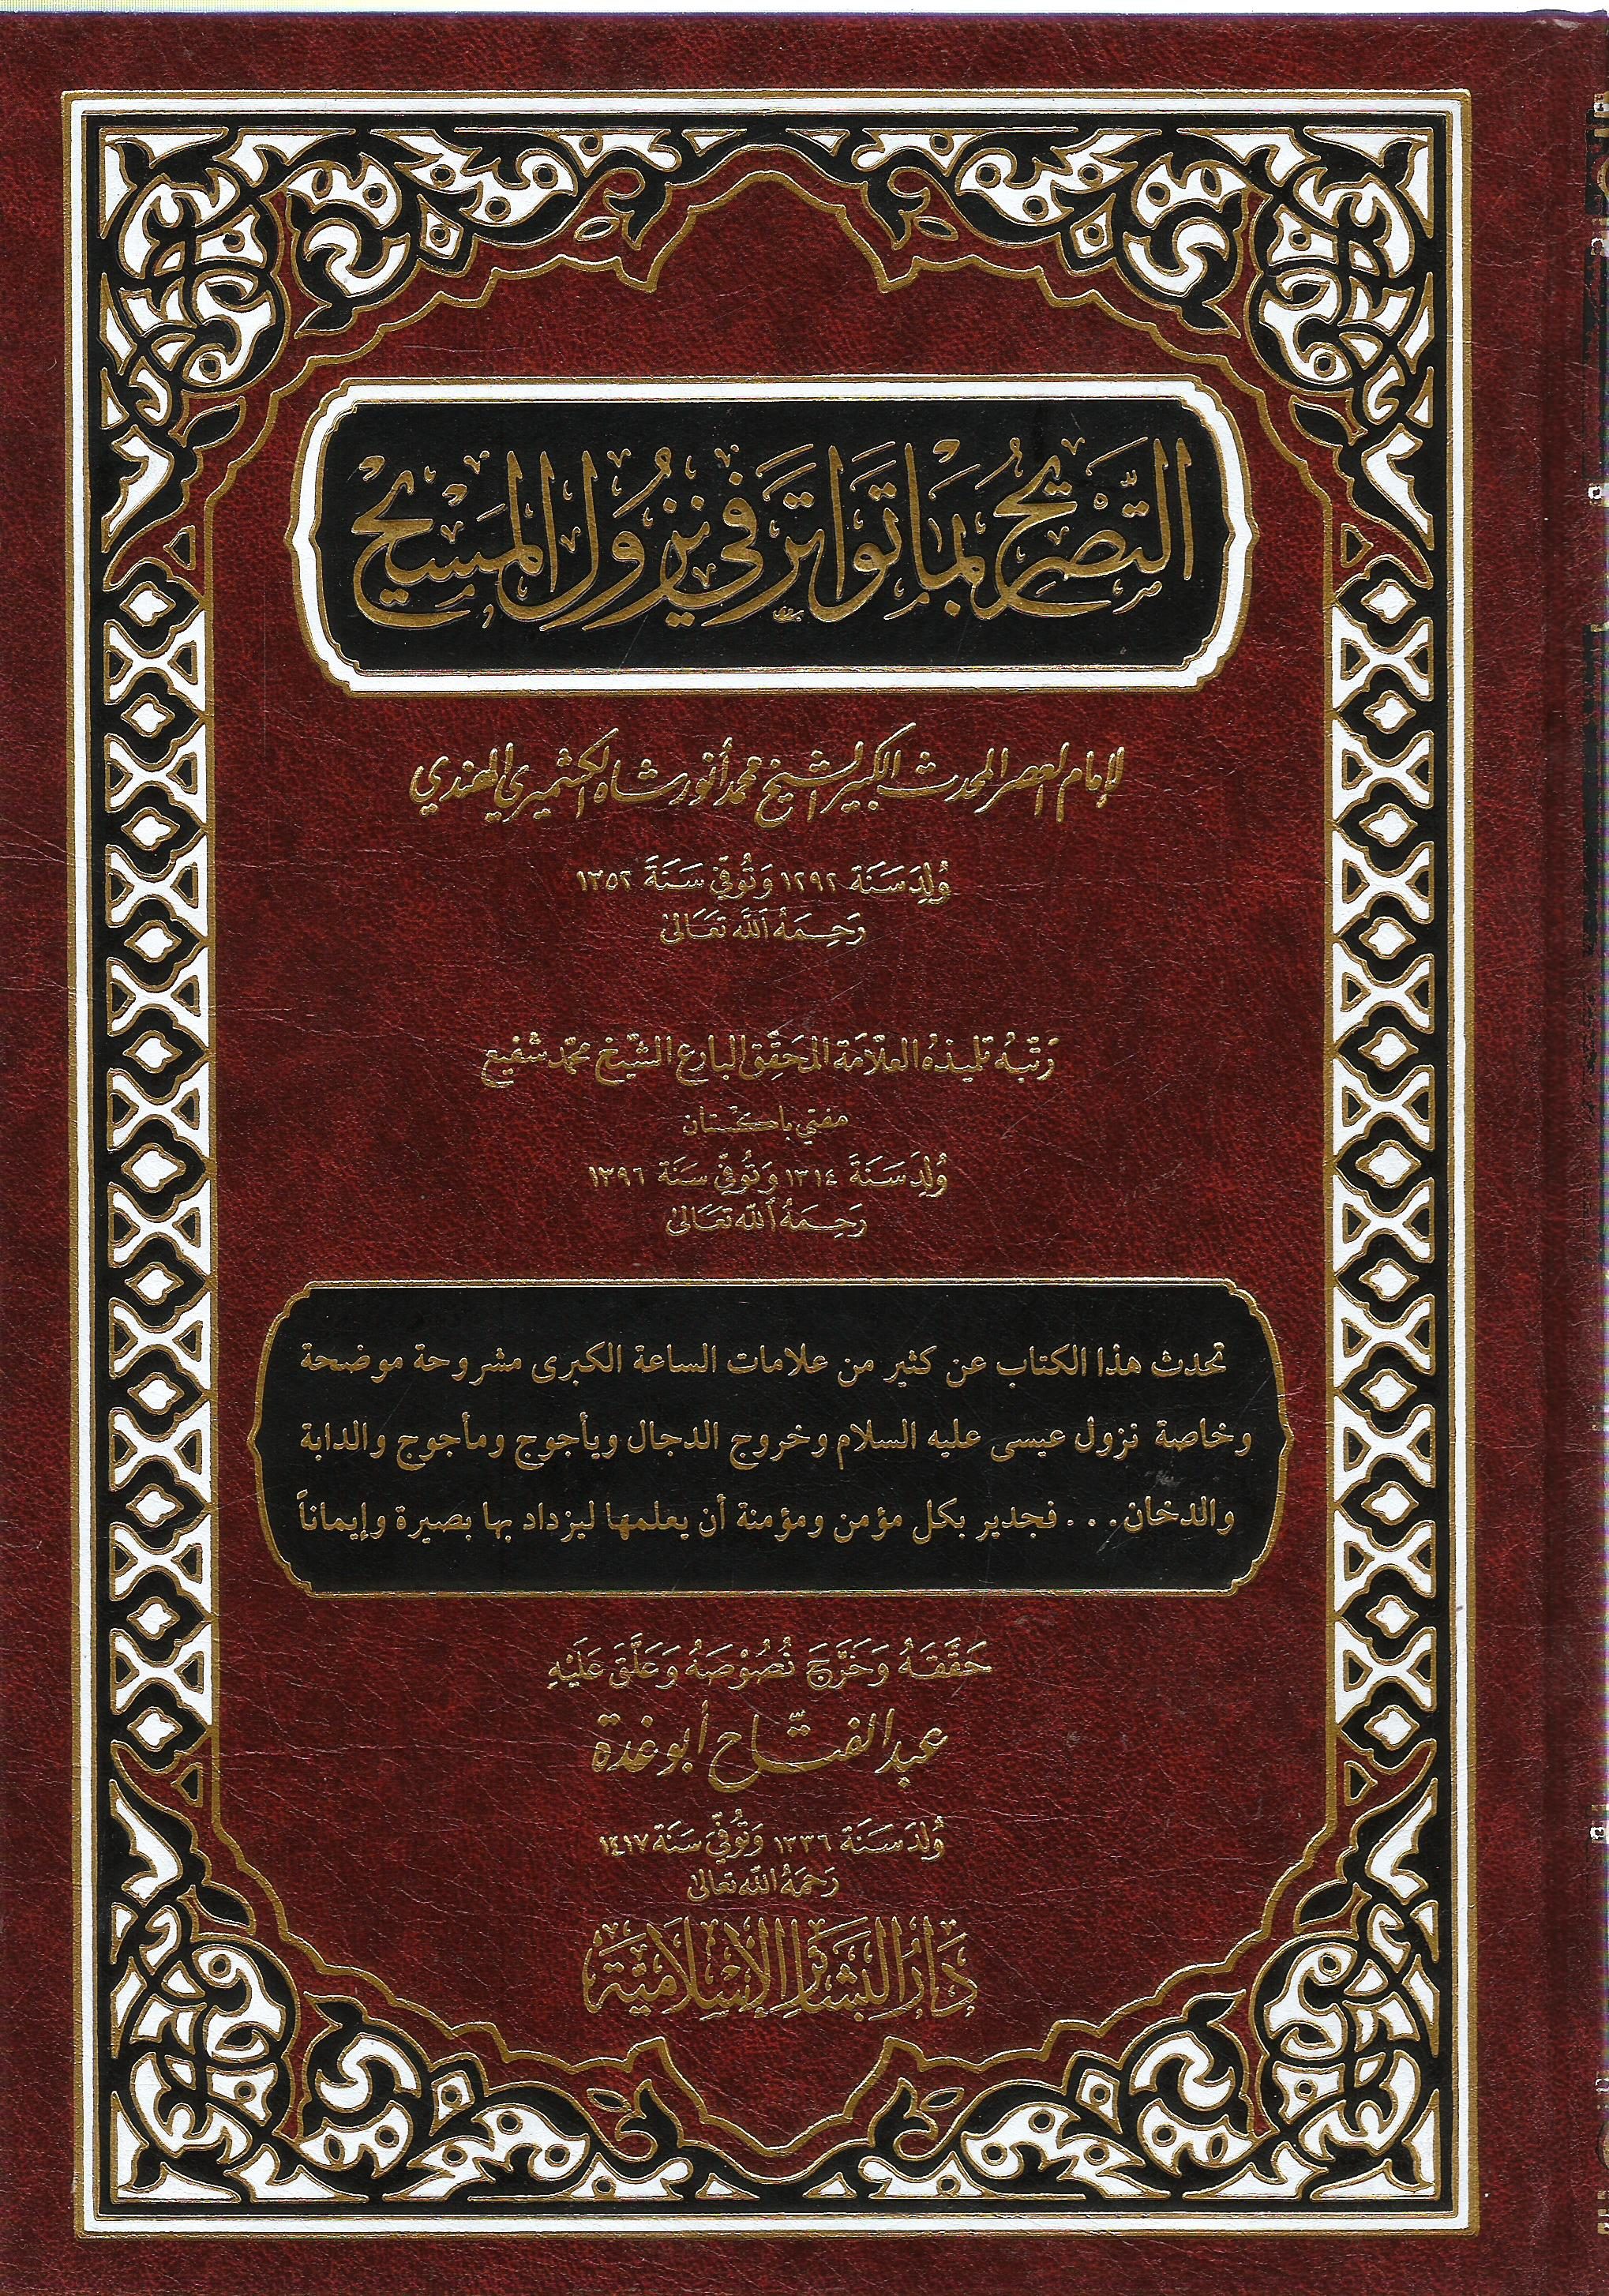 التَّصْرِيحُ بِمَا تَوَاتَرَ فِي نُزُولِ المَسِيحِ
لإمام العصر المحدث الكبير الشيخ محمد أنور شاه الكشميري الهندي
وُلِدَ سَنَة ١٢٩٢ وَتُوُفِّيَ سَنَةَ ١٣٥٢
رَحِمَهُ اللَّه تَعَالىٰ
رَتَّبَهُ تلميذهُ العلّامَة المحَقِّق البارع الشَّيخ محمّد شفيع
مفتي باكستان
وُلِدَ سَنَةَ ١٣١٤ وَتُوُفِّيَ سَنَة ١٣٩٦
رَحِمَهُ اللّه تعَالىٰ
تحدث هذا الكتاب عن كثير من علامات الساعة الكبرى مشروحة موضحة
وخاصة نزول عيسى عليه السلام وخروج الدجال ويأجوج ومأجوج والدابة
والدخان... فجدير بكل مؤمن ومؤمنة أن يعلمها ليزداد بها بصيرة وإيماناً
حَقَّقَهُ وَخَرَّجَ نُصُوْصَهُ وَعَلَّقَ عَلَيْهِ
عبد الفتّاح أبو غدة
وُلِدَ سَنَة ١٣٣٦ وَتُوُفِّيَ سَنَة ١٤١٧
رَحِمَهُ اللّه تعالىٰ
دَارُ البَشَائِرِ الإِسْلَامِيَّة